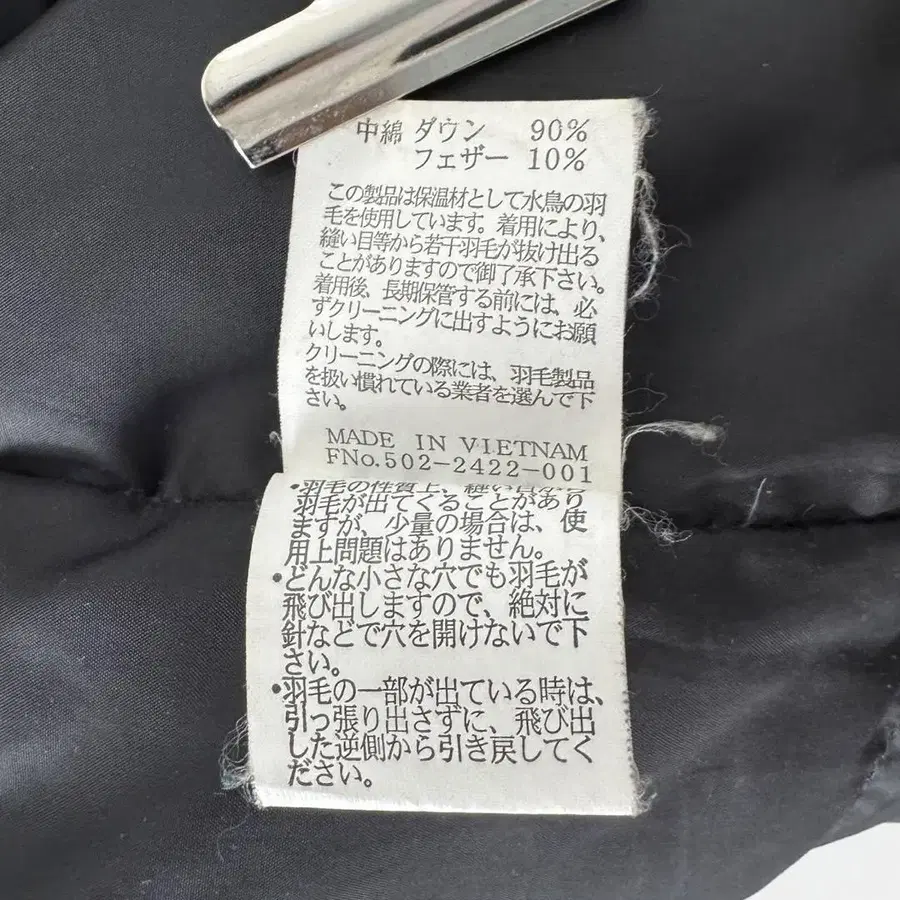 中綿 ダウン 90%
フェザー 10%
この製品は保温材として水鳥の羽
毛を使用しています。着用により、
縫い目等から若干羽毛が抜け出る
ことがありますので御了承下さい。
着用後、長期保管する前には、必
ずクリーニングに出すようにお願
いします。
クリーニングの際には、羽毛製品
を扱い慣れている業者を選んで下
さい。
MADE IN VIETNAM
FNo.502-2422-001
・羽毛の性質上、縫い目から
羽毛が出てくることがあり
ますが、少量の場合は、使
用上問題はありません。
・どんな小さな穴でも羽毛が
飛び出しますので、絶対に
針などで穴を開けないで下
さい。
・羽毛の一部が出ている時は、
引っ張り出さずに、飛び出
した逆側から引き戻してく
ださい。